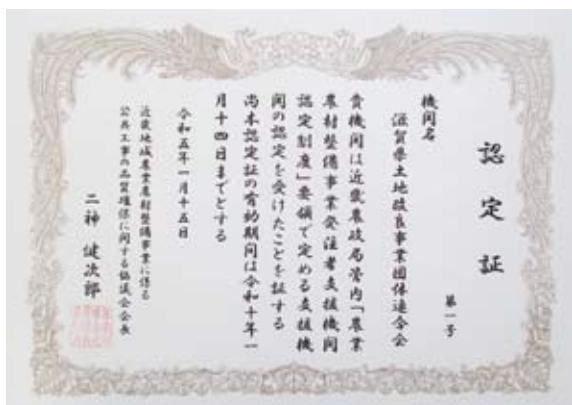 認定証
第一号
機関名
滋賀県土地改良事業団体連合会
貴機関は近畿農政局管内「農業
農村整備事業発注者支援機関
認定制度」要領で定める支援機
関の認定を受けたことを証する
尚本認定証の有効期間は令和十年一
月十四日までとする
令和五年一月十五日
近畿地域農業農村整備事業に係る
公共工事の品質確保に関する協議会会長
二神健次郎